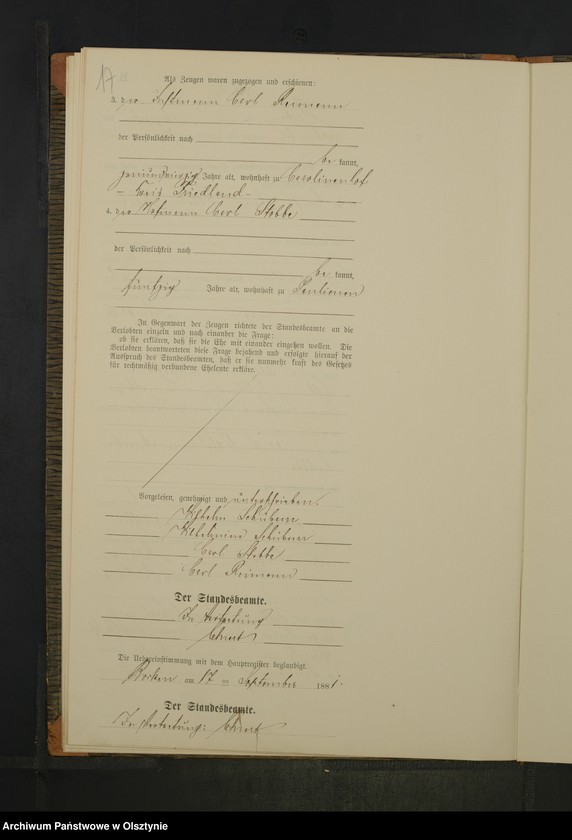 17
Als Zeugen waren zugezogen und erschienen:
3. der Instmann Carl Reimann
der Persönlichkeit nach
be kannt,
Jahre alt, wohnhaft zu Carolinenhof
Kreis Friedland
4. der Carl Stobbe
der Persönlichkeit nach
be kannt,
fünfzig Jahre alt, wohnhaft zu
In Gegenwart der Zeugen richtete der Standesbeamte an die
Verlobten einzeln und nach einander die Frage:
ob sie erklären, daß sie die Ehe mit einander eingehen wollen. Die
Verlobten beantworteten diese Frage bejahend und erfolgte hierauf der
Ausspruch des Standesbeamten, daß er sie nunmehr kraft des Gesetzes
für rechtmäßig verbundene Eheleute erkläre.
Vorgelesen, genehmigt und unterschrieben.
Wilhelm
Wilhelmine
Carl Stobbe
Carl Reimann
Der Standesbeamte.
In Vertretung
Die Uebereinstimmung mit dem Hauptregister beglaubigt.
am 17 ten September 1881.
Der Standesbeamte.
In Vertretung:
Archiwum Państwowe w Olsztynie